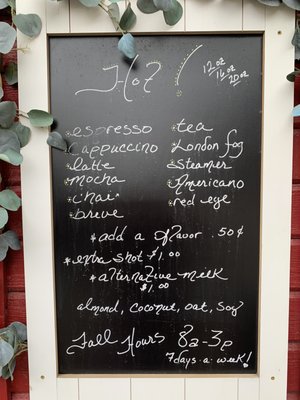 Hot
12oz
16oz
20oz
*espresso
*cappuccino
*latte
*mocha
*chai
*breve
*tea
*London fog
*steamer
*Americano
*red eye
*add a flavor .50¢
*extra shot $1.00
*alternative milk
$1.00
almond, coconut, oat, soy
Fall Hours 8a-3p
7 days.a.week!